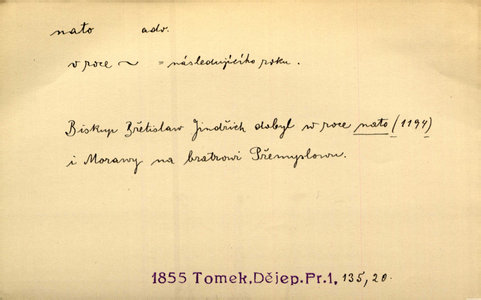 nato adv.
v roce ~ = následujícího roku.
Biskup Břetislaw Jindřich dobyl w roce nato (1194)
i Morawy na bratrowi Přemyslowu.
1855 Tomek, Dějep. Pr. 1, 135, 20.